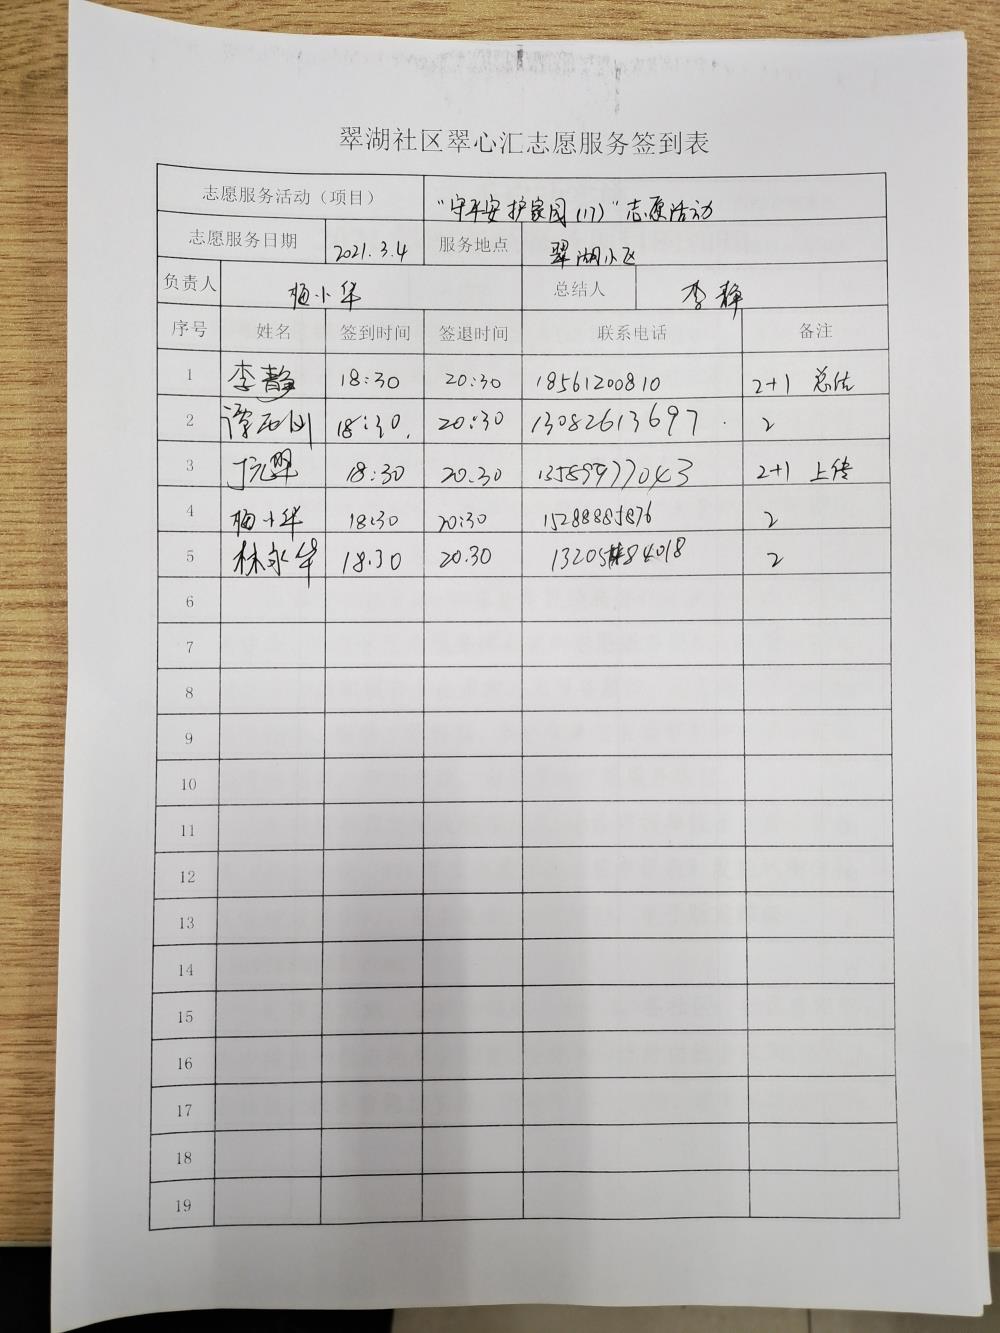 翠湖社区翠心汇志愿服务签到表
志愿服务活动（项目） "守平安护家园(17)"志愿活动
志愿服务日期 2021.3.4 服务地点 翠湖小区
负责人 梅小华 总结人 李静
序号 姓名 签到时间 签退时间 联系电话 备注
1 李静 18:30 20:30 18561200810 2+1 总结
2 18:30. 20:30 13082613697 2
3 18:30 20.30 13589977043 2+1 上传
4 梅小华 18:30 20:30 15288885876 2
5 林永华 18.30 20.30 2
6
7
8
9
10
11
12
13
14
15
16
17
18
19